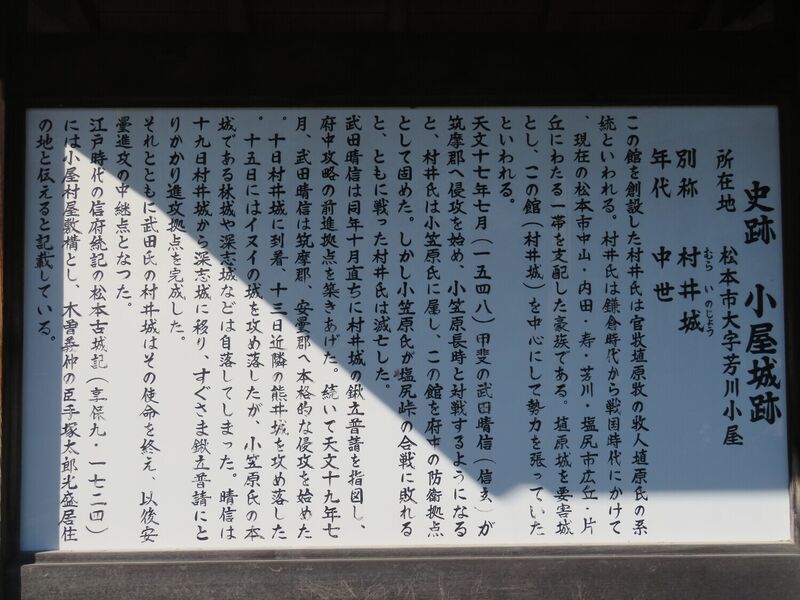 史跡　小屋城跡
所在地　松本市大字芳川小屋
別称　村井城
むら　いのじょう
年代　中世
この館を創設した村井氏は官牧埴原牧の牧人埴原氏の系
統といわれる。村井氏は鎌倉時代から戦国時代にかけて
、現在の松本市中山・内田・寿・芳川・塩尻市広丘・片
丘にわたる一帯を支配した豪族である。埴原城を要害城
とし、この館（村井城）を中心にして勢力を張っていた
といわれる。
天文十七年七月（一五四八）甲斐の武田晴信（信玄）が
筑摩郡へ侵攻を始め、小笠原長時と対戦するようになる
と、村井氏は小笠原氏に属し、この館を府中の防衛拠点
として固めた。しかし小笠原氏が塩尻峠の合戦に敗れる
と、ともに戦った村井氏は滅亡した。
武田晴信は同年十月直ちに村井城の鍬立普請を指図し、
府中攻略の前進拠点を築きあげた。続いて天文十九年七
月、武田晴信は筑摩郡、安曇郡へ本格的な侵攻を始めた
。十日村井城に到着、十三日近隣の熊井城を攻め落した
。十五日にはイヌイの城を攻め落したが、小笠原氏の本
城である林城や深志城などは自落してしまった。晴信は
十九日村井城から深志城に移り、すぐさま鍬立普請にと
りかかり進攻拠点を完成した。
それとともに武田氏の村井城はその使命を終え、以後安
曇進攻の中継点となった。
江戸時代の信府統記の松本古城記（享保九・一七二四）
には小屋村屋敷構とし、木曽義仲の臣手塚太郎光盛居住
の地と伝えると記載している。